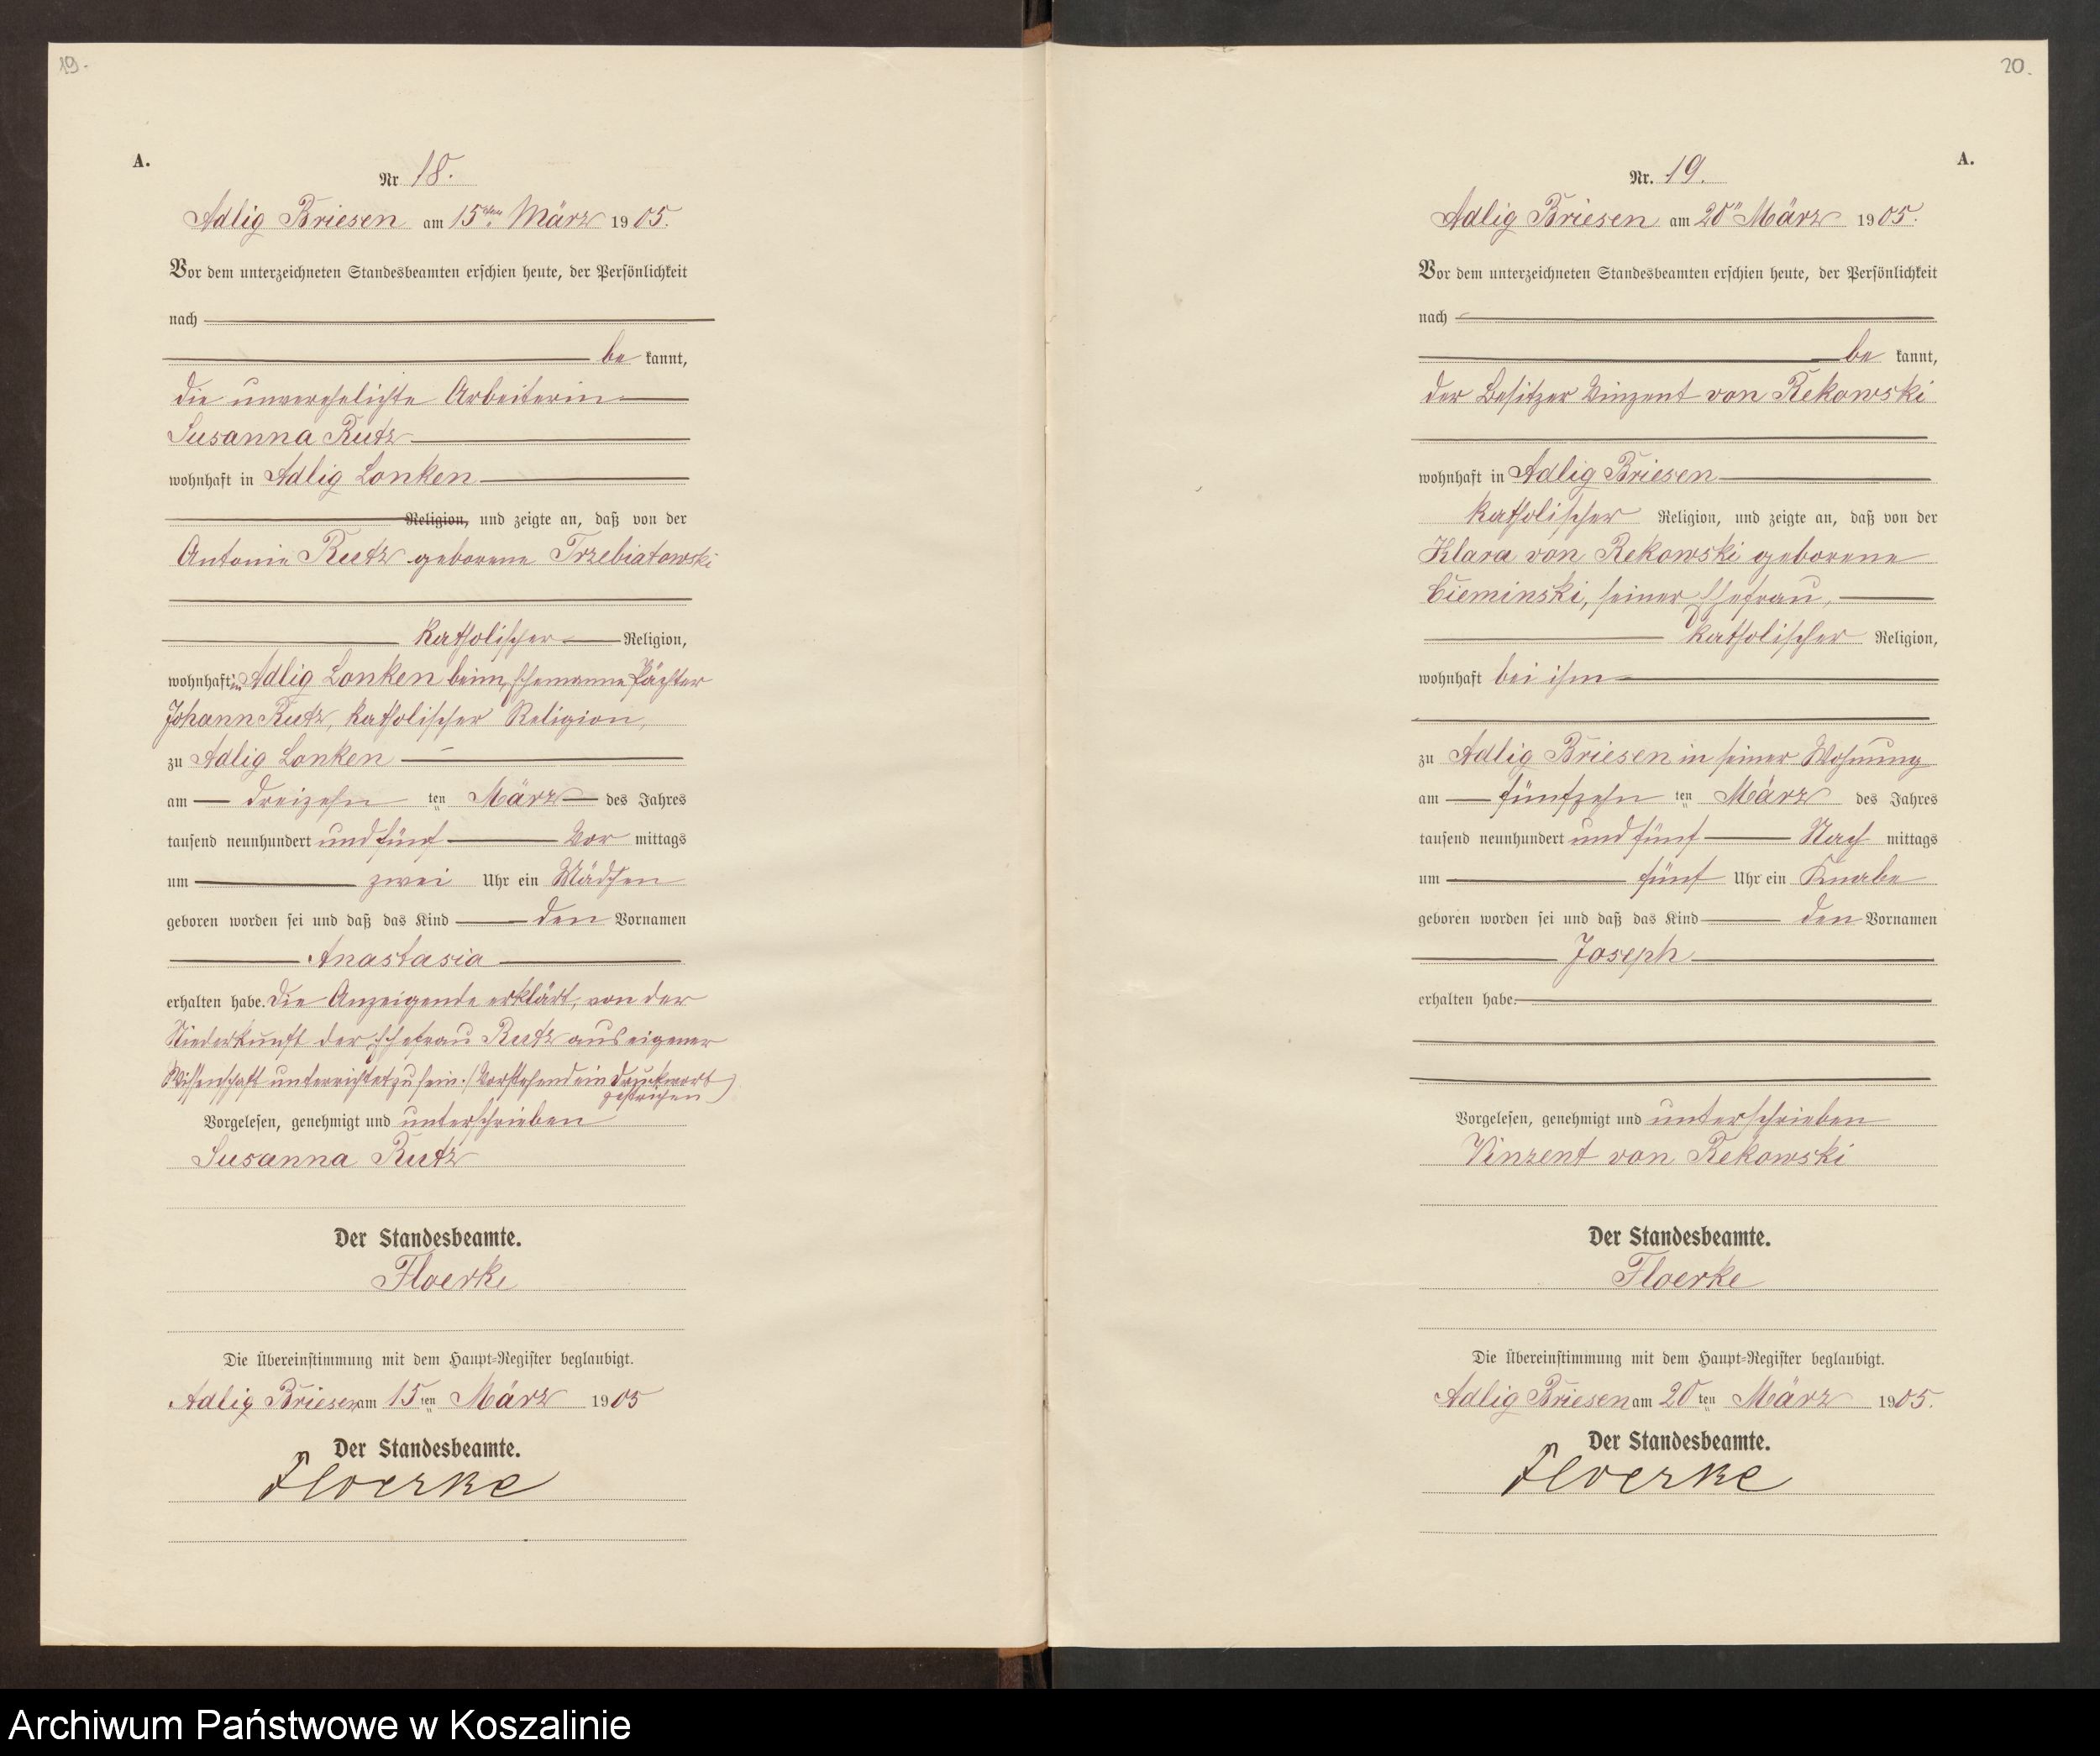 19.
A.
Nr 18.
Adlig Briesen am 15ten März 1905.
Vor dem unterzeichneten Standesbeamten erschien heute, der Persönlichkeit
nach
be kannt,
die unverehelichte Arbeiterin
Susanna Rutz
wohnhaft in Adlig Lonken
Religion, und zeigte an, daß von der
Antonie Rutz geborene Trzebiatowski
katholischer Religion,
wohnhaft in Adlig Lonken beim Ehemanne Pächter
Johann Rutz, katholischer Religion,
zu Adlig Lonken
am dreizehn ten März des Jahres
tausend neunhundert und fünf Vor mittags
um zwei Uhr ein Mädchen
geboren worden sei und daß das Kind den Vornamen
Anastasia
erhalten habe. Die Anzeigende erklärt, von der
Niederkunft der Ehefrau Rutz aus eigener
Wissenschaft unterrichtet zu sein. (Vorstehend ein Druckwort
gestrichen)
Vorgelesen, genehmigt und unterschrieben
Susanna Rutz
Der Standesbeamte.
Floerke
Die Übereinstimmung mit dem Haupt-Register beglaubigt.
Adlig Briesen am 15ten März 1905
Der Standesbeamte.
Floerke
20.
A.
Nr. 19.
Adlig Briesen am 20" März 1905.
Vor dem unterzeichneten Standesbeamten erschien heute, der Persönlichkeit
nach
be kannt,
der Besitzer Vinzent von Rekowski
wohnhaft in Adlig Briesen
katholischer Religion, und zeigte an, daß von der
Klara von Rekowski geborene
Cieminski, seiner Ehefrau,
katholischer Religion,
wohnhaft bei ihm
zu Adlig Briesen in seiner Wohnung
am fünfzehn ten März des Jahres
tausend neunhundert und fünf Nach mittags
um fünf Uhr ein Knabe
geboren worden sei und daß das Kind den Vornamen
Joseph
erhalten habe.
Vorgelesen, genehmigt und unterschrieben
Vinzent von Rekowski
Der Standesbeamte.
Floerke
Die Übereinstimmung mit dem Haupt-Register beglaubigt.
Adlig Briesen am 20ten März 1905.
Der Standesbeamte.
Floerke
Archiwum Państwowe w Koszalinie